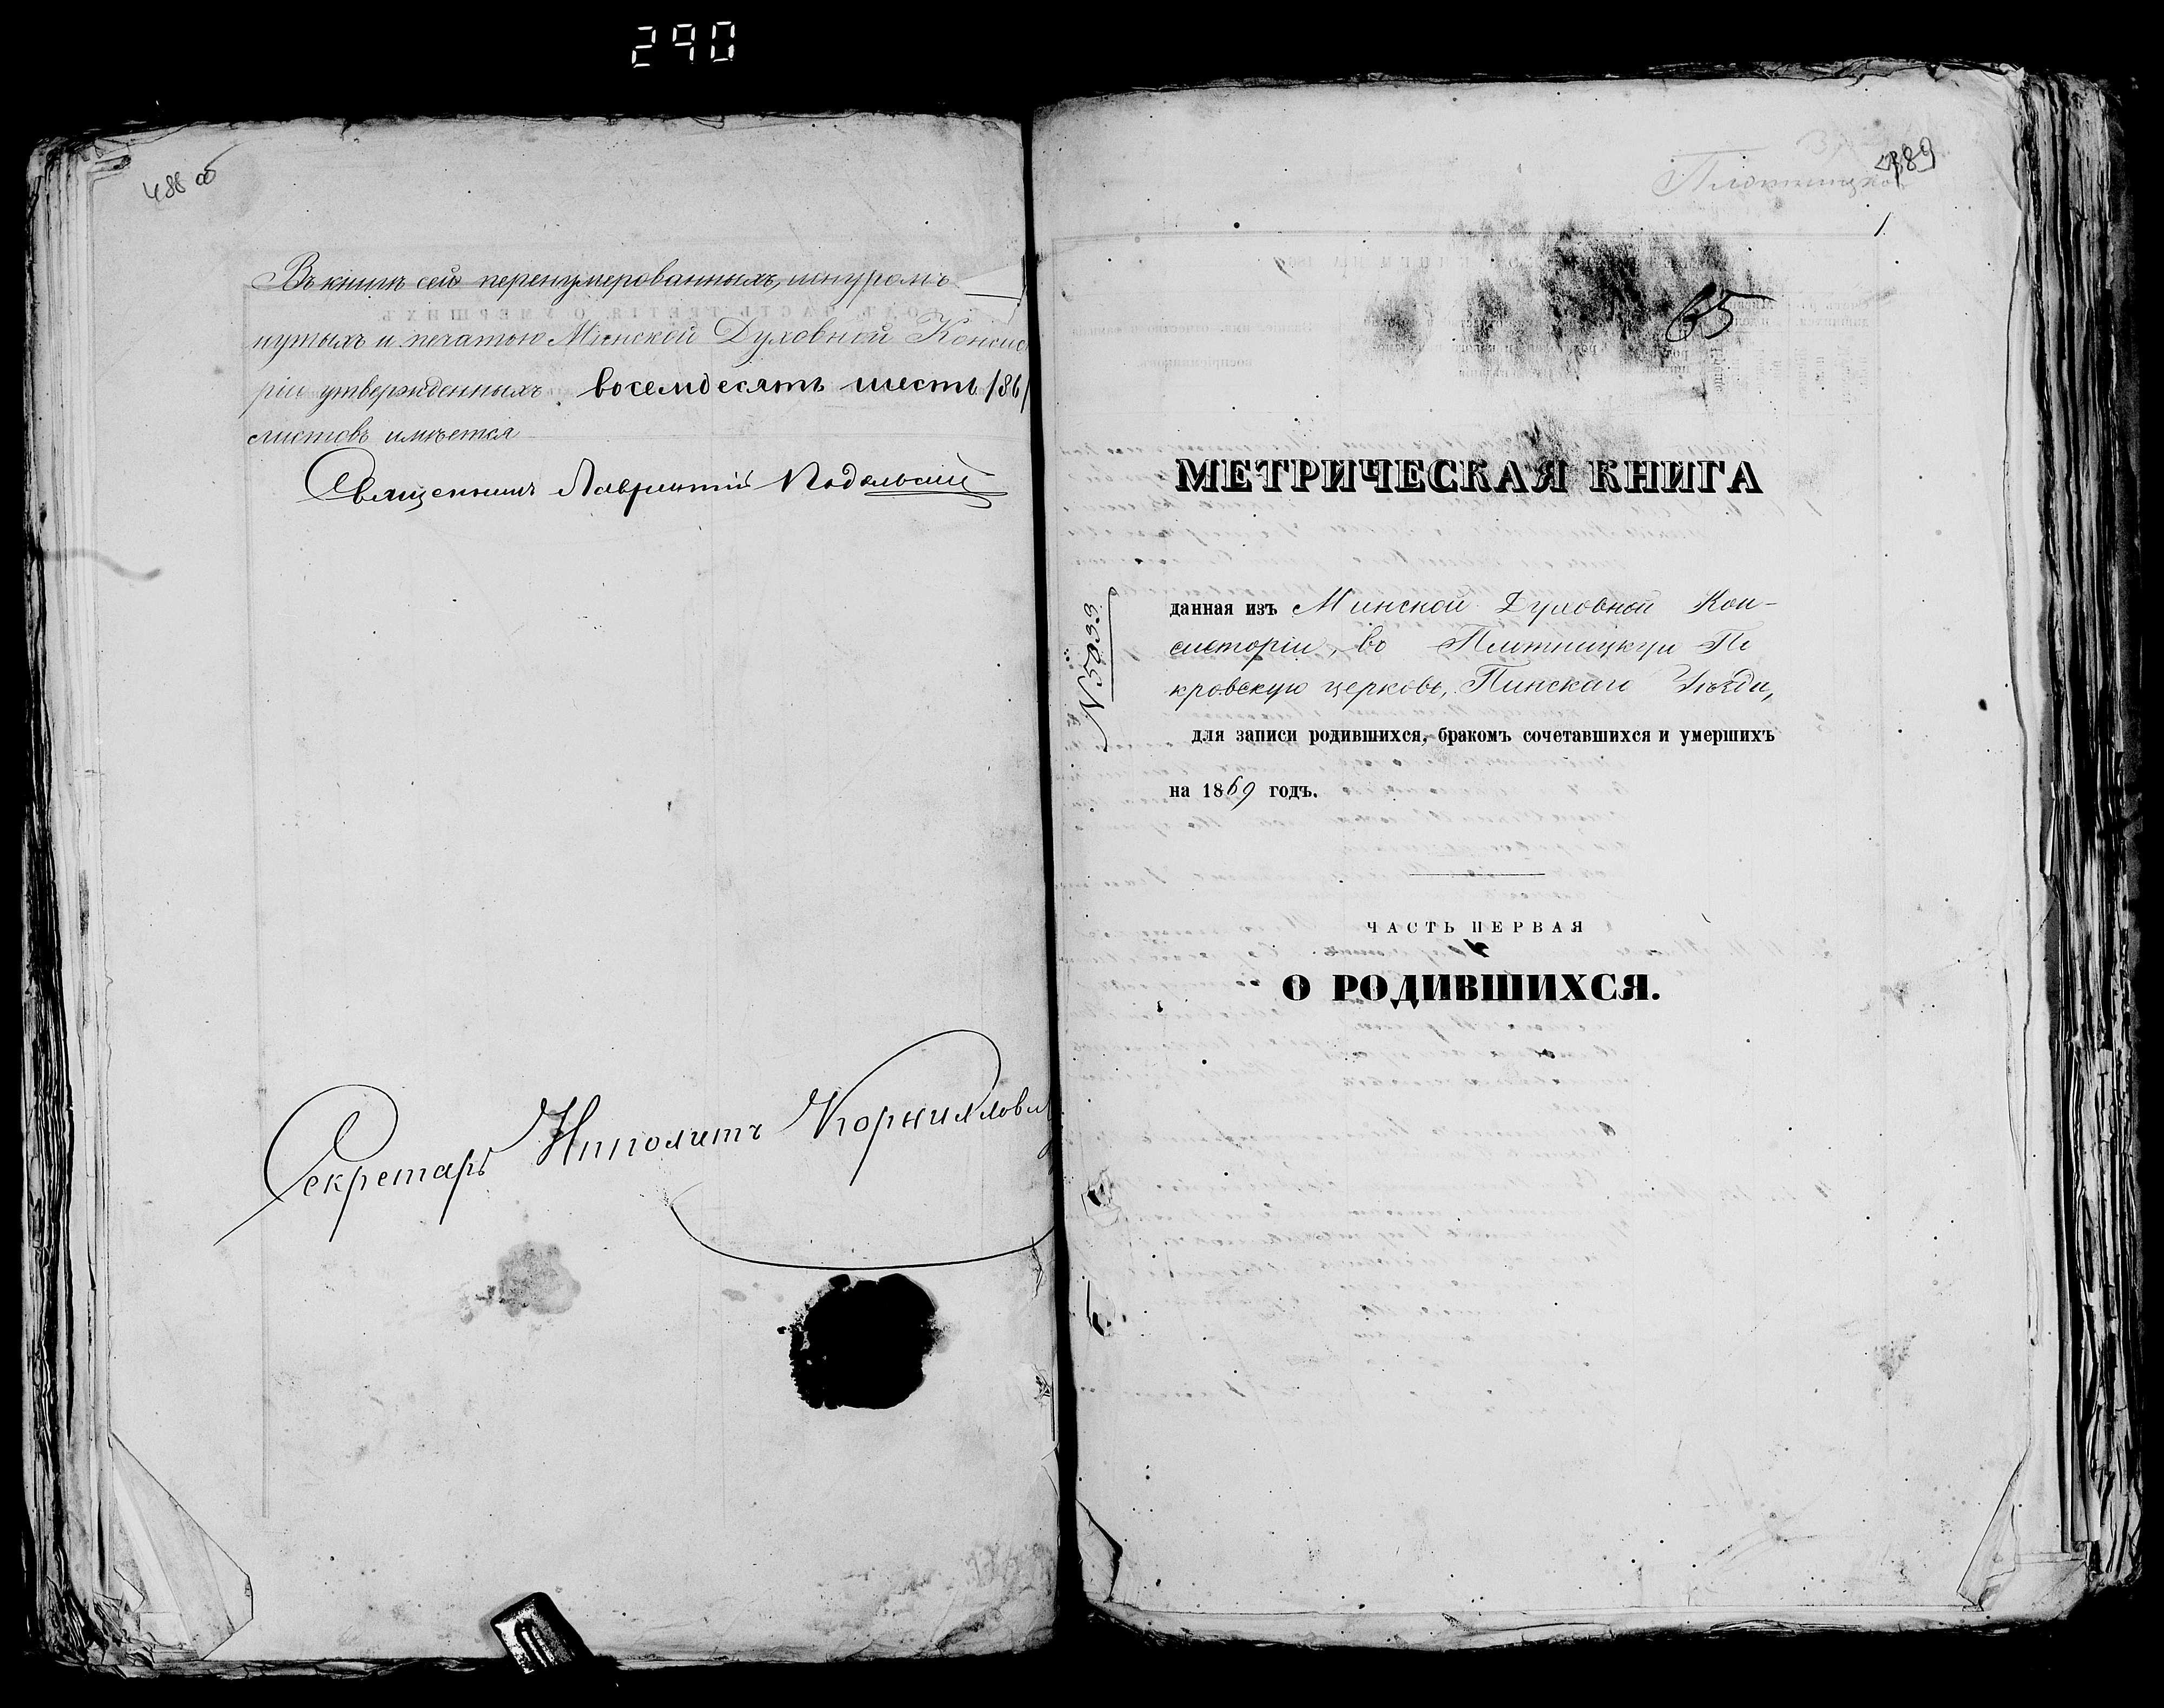 290
488 об
Въ книгѣ сей перенумерованныхъ, шнуромъ
нутыхъ и печатью Минской Духовной Консис
ріи утвержденныхъ восемдесятъ шесть /86/
листовъ имѣется
Священникъ Лаврентій Подольскій
Секретарь Ипполитъ Корнилови
489
Плотницкой
1
65
МЕТРИЧЕСКАЯ КНИГА
№ 5033
данная изъ Минской Духовной Кон-
систоріи, во Плотницкую По
кровскую церковь, Пинскаго Уѣзда,
для записи родившихся, бракомъ сочетавшихся и умершихъ
на 1869 годъ.
ЧАСТЬ ПЕРВАЯ
О РОДИВШИХСЯ.